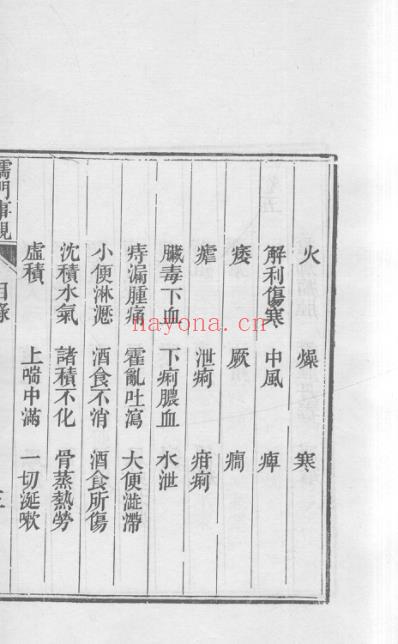 火　燥　寒
解利傷寒　中風　痺
痿　厥　癎
瘧　泄痢　疳痢
臟毒下血　下痢膿血　水泄
痔漏腫痛　霍亂吐瀉　大便澁滯
小便淋瀝　酒食不消　酒食所傷
沈積水氣　諸積不化　骨蒸熱勞
虛積　上喘中滿　一切涎嗽
儒門事親　目錄　三
nayona.cn